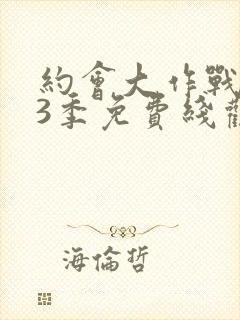 約會大作戰
3季免費綫觀
海倫哲